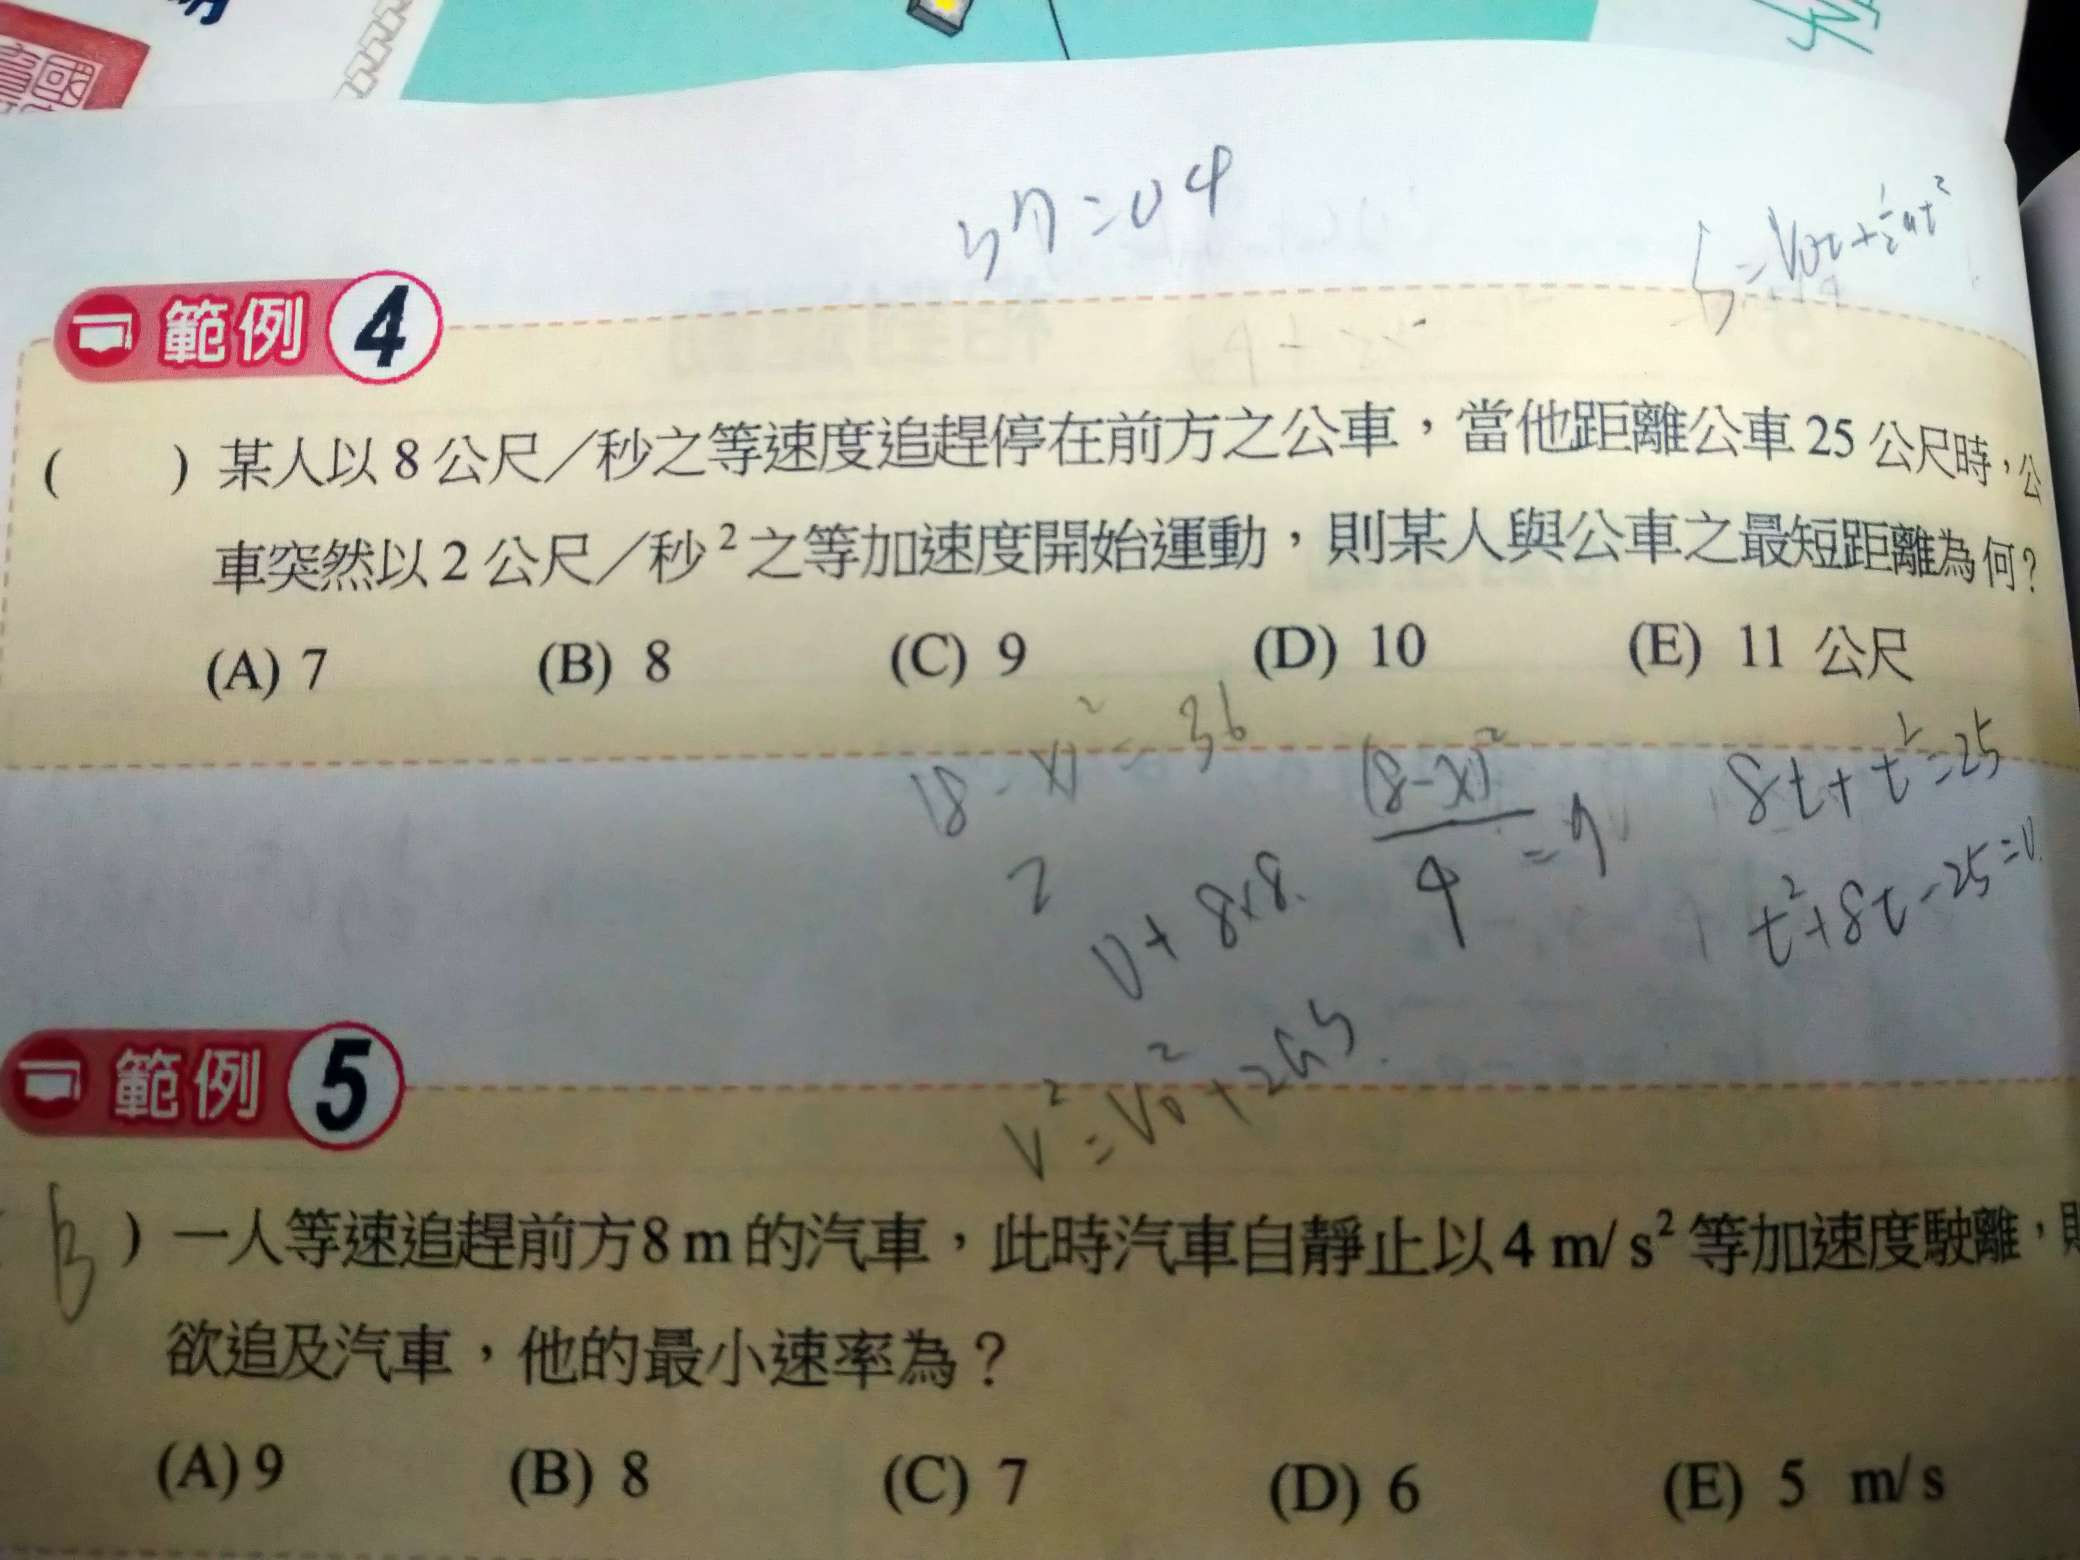 S=V₀t+½at²
範例 4
( ) 某人以 8 公尺／秒之等速度追趕停在前方之公車，當他距離公車 25 公尺時，公
車突然以 2 公尺／秒²之等加速度開始運動，則某人與公車之最短距離為何？
(A) 7 (B) 8 (C) 9 (D) 10 (E) 11 公尺
(8-x)²=36
2
(8-x)²/4=9
8t+t²=25
0+8×8
t²+8t-25=0
V²=V₀²+2aS
範例 5
B ) 一人等速追趕前方8 m 的汽車，此時汽車自靜止以 4 m/ s² 等加速度駛離，
欲追及汽車，他的最小速率為？
(A) 9 (B) 8 (C) 7 (D) 6 (E) 5 m/ s